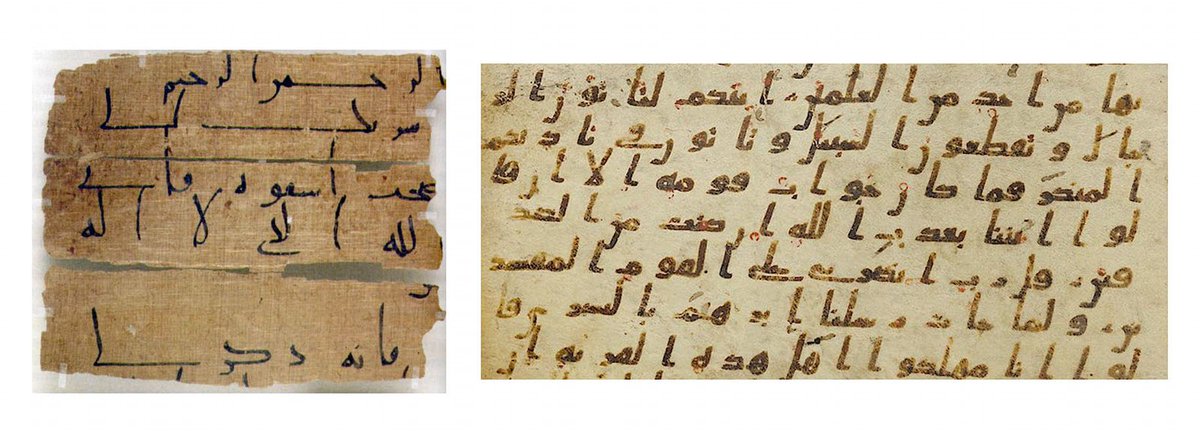 الرحمن الرحيم
فاني
الله الذي لا اله
فانه
بها من احد من العلمين ائنكم لتاتون الر
جال وتقطعون السبيل وتاتون في ناديكم
المنكر فما كان جواب قومه الا ان قا
لوا ائتنا بعذاب الله ان كنت من الصد
قين قال رب انصرني على القوم المفسد
ين ولما جات رسلنا ابرهيم بالبشرى قا
لوا انا مهلكوا اهل هذه القرية ان